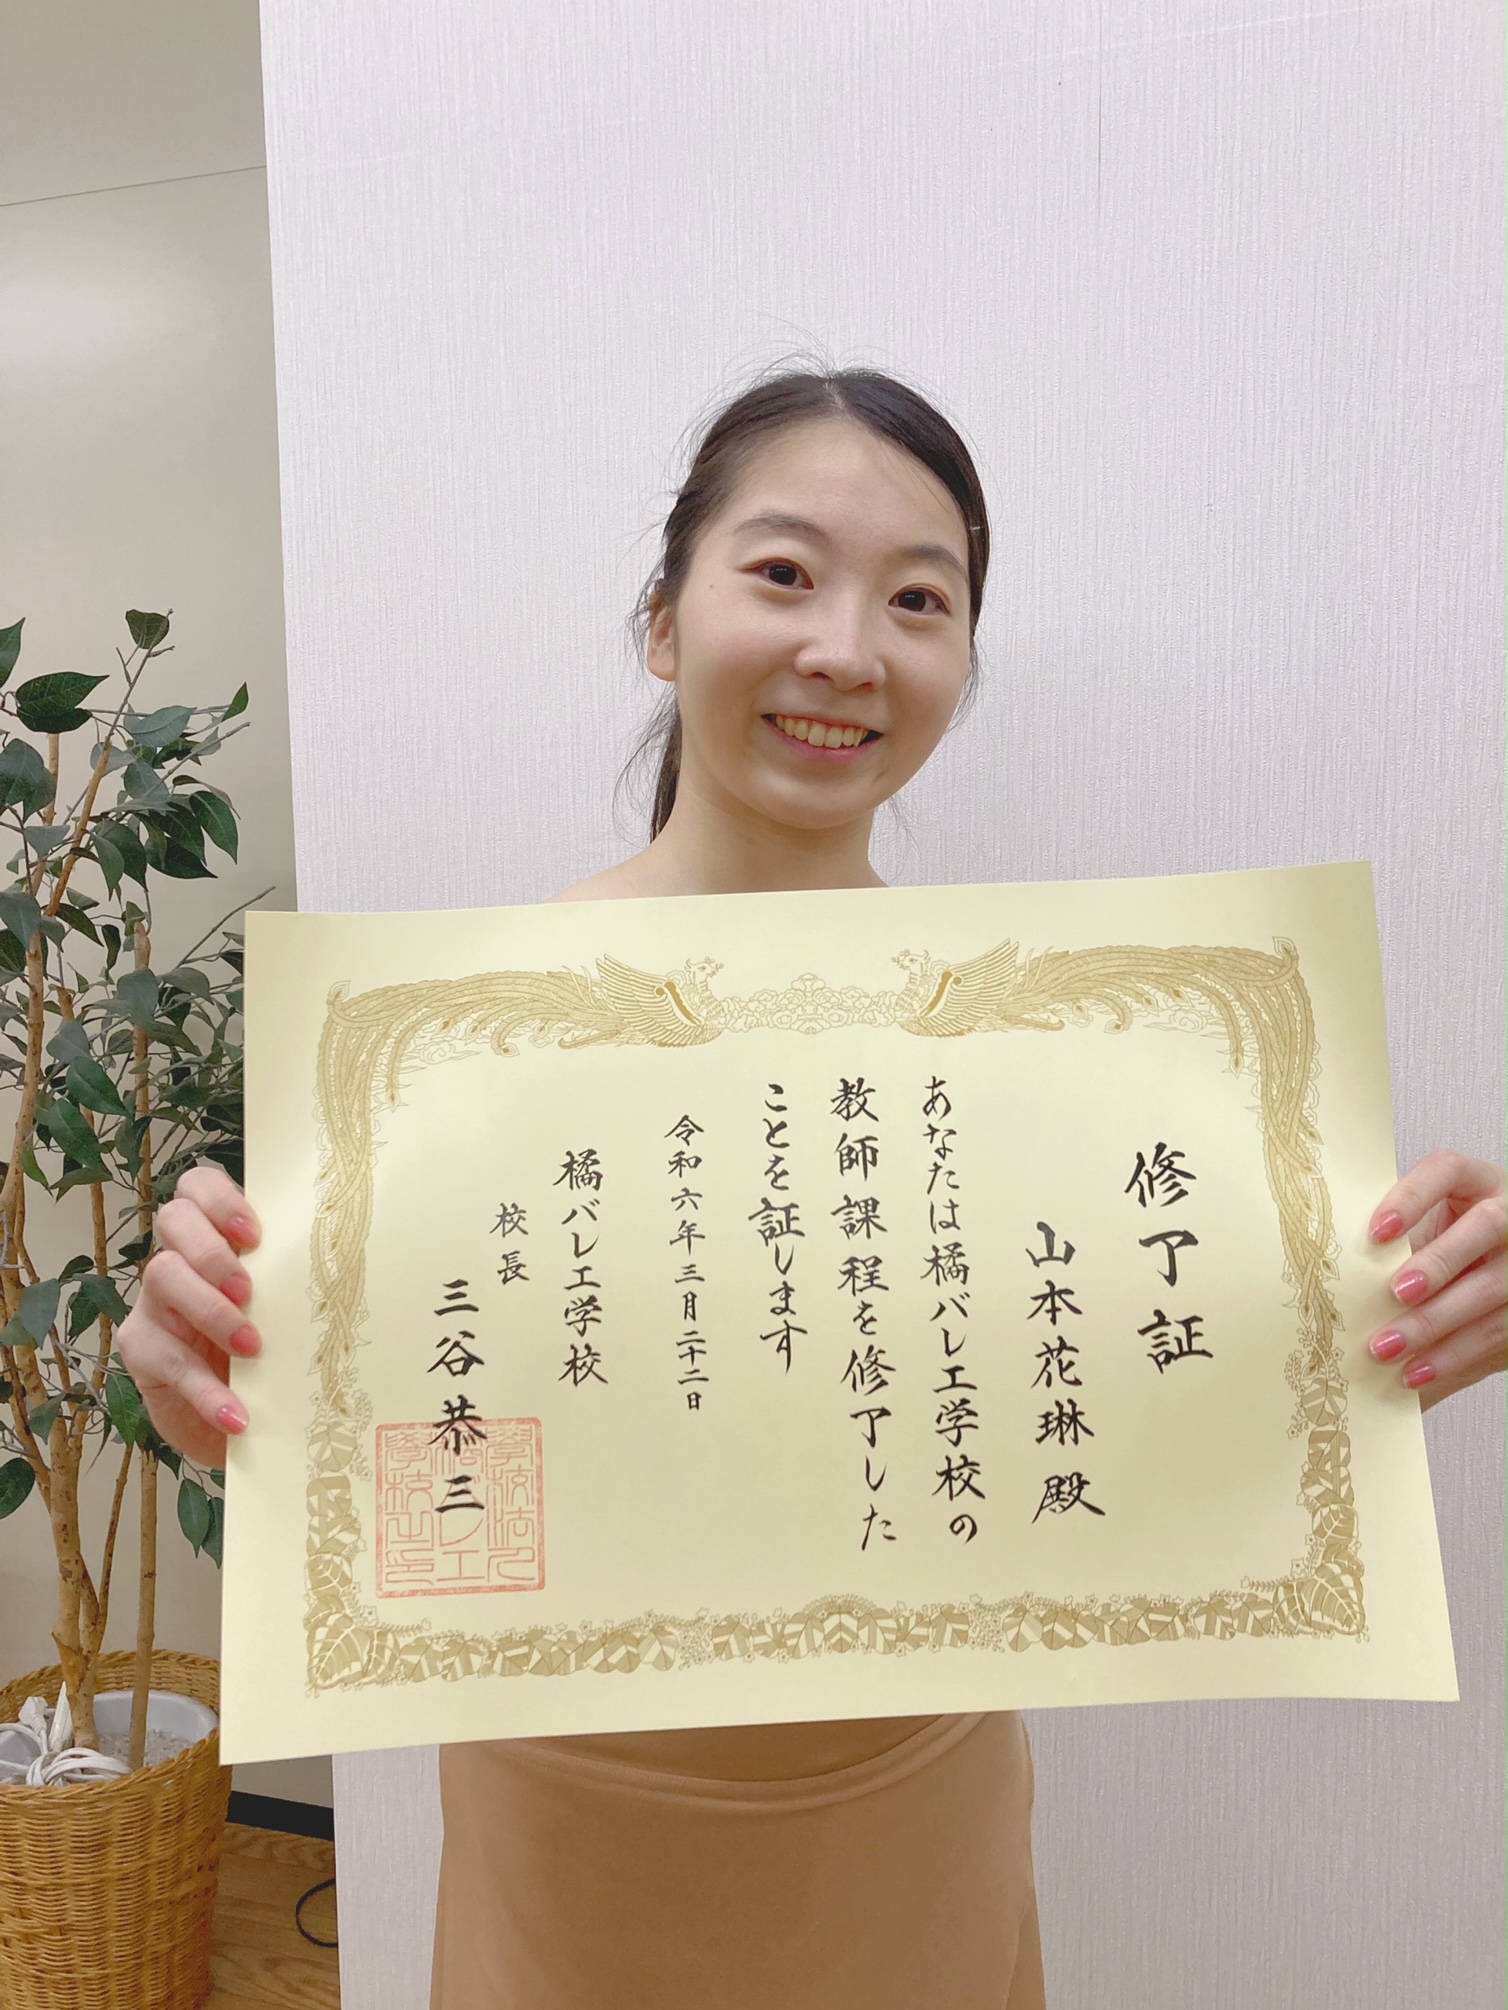 修了証
山本花琳殿
あなたは橘バレエ学校の
教師課程を修了した
ことを証します
令和六年三月二十二日
橘バレエ学校
校長
三谷恭三